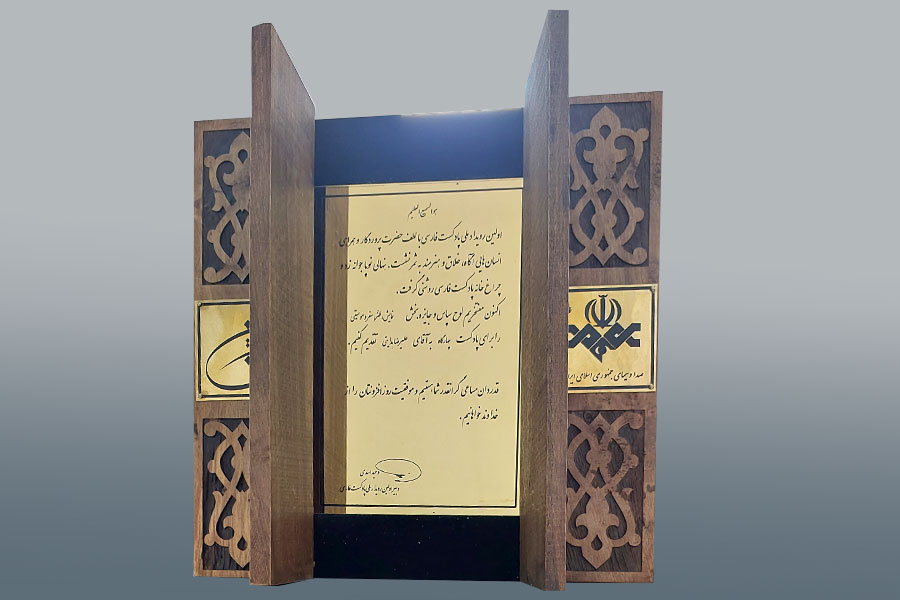 هو السمیع العلیم
اولین رویداد ملی پادکست فارسی با لطف حضرت پروردگار و همراهی
انسان‌هایی آگاه، خلاق و هنرمند به ثمر نشست، نهالی نوپا جوانه زد و
چراغ خانه پادکست فارسی روشنی گرفت.
اکنون مفتخریم لوح سپاس و جایزه بخش موسیقی
را برای پادکست چارگاه به آقای علیرضا تقدیم کنیم.
قدردان مساعی گرانقدر شما هستیم و موفقیت روزافزونتان را از
خداوند خواهانیم.
وحید اسدی
دبیر اولین رویداد ملی پادکست فارسی
صدا و سیمای جمهوری اسلامی ایران